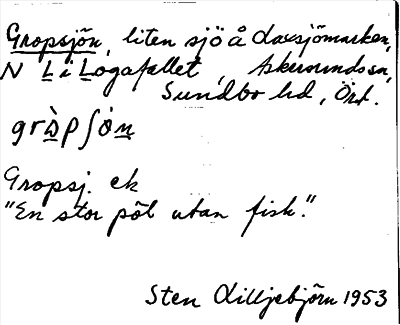 Gropsjön, liten sjö å Laxsjömarken,
N L i Logafallet, Askersunds sn,
Sundbo hd, Ört.
gràpʃòn
Gropsj. ek
"En stor pöl utan fisk."
Sten Lilljebjörn 1953